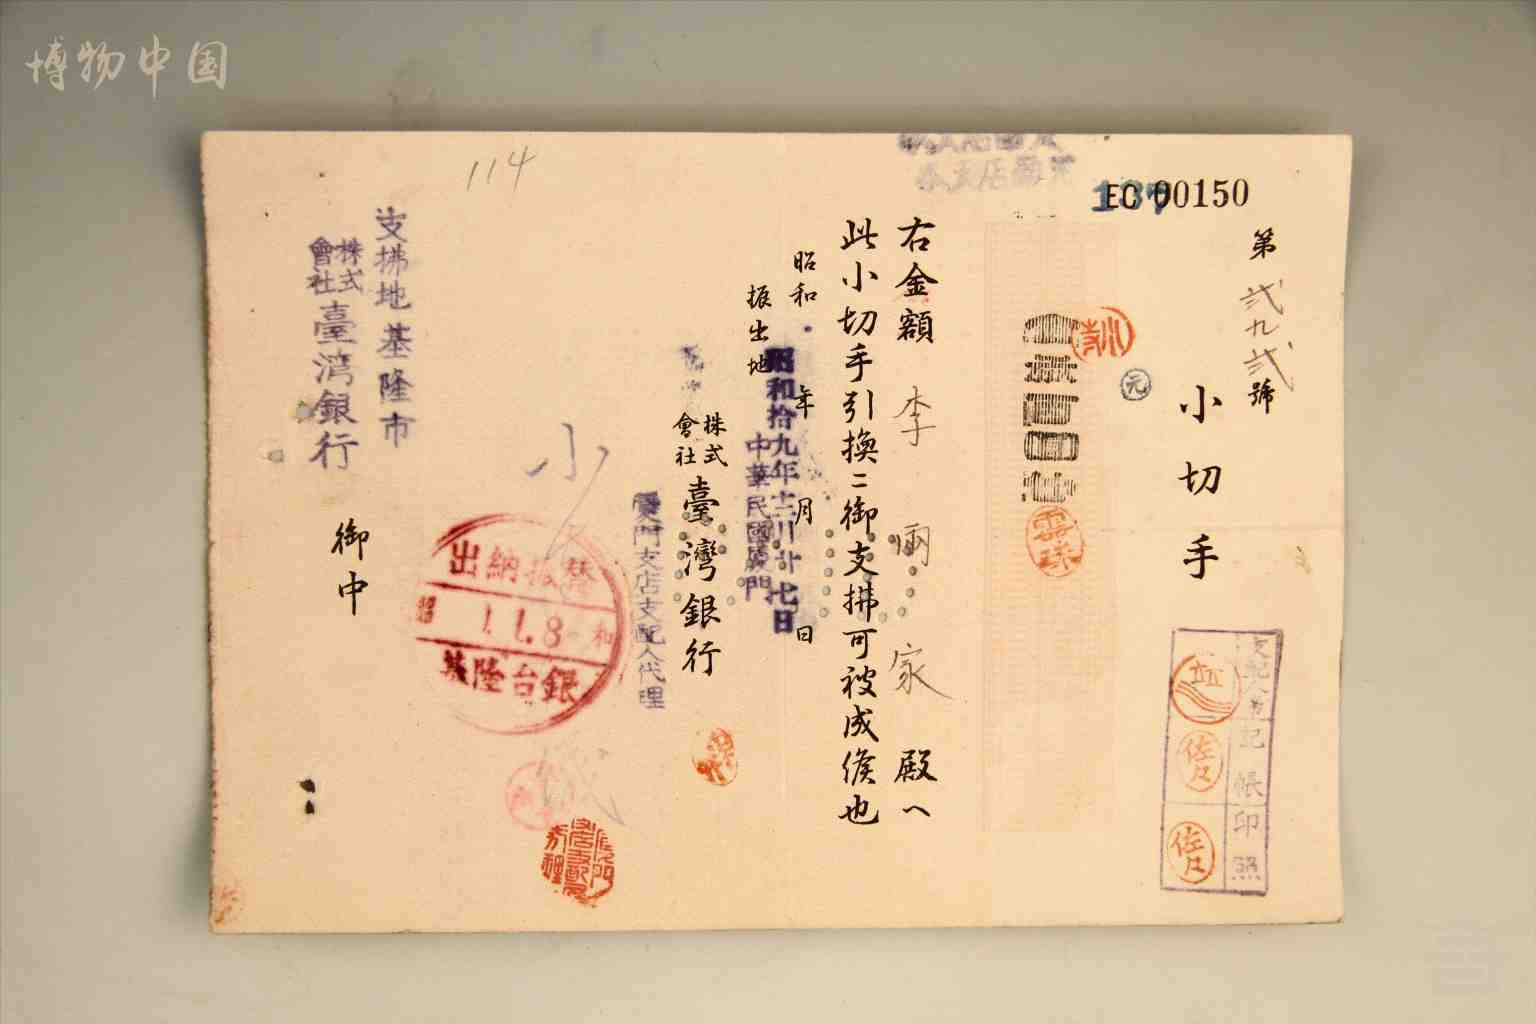 博物中国
114
EC 00150
第 弐九弐 號
小切手
元
支配人 記帳 印照
佐々
佐々
右金額 李 兩 家 殿へ
此小切手引換ニ御支拂可被成候也
昭和 年 月 日
昭和拾九年十二月廿七日
振出地
中華民國廈門
株式會社 臺灣銀行
廈門支店支配人代理
小
出納振替
昭和
11.8
基隆台銀
支拂地基隆市
株式會社 臺灣銀行
御中